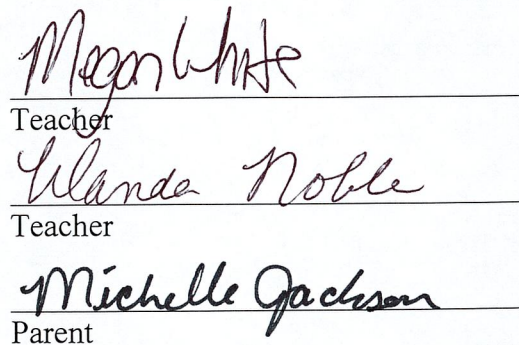 Megan White
Teacher
Wanda Noble
Teacher
Michelle Jackson
Parent